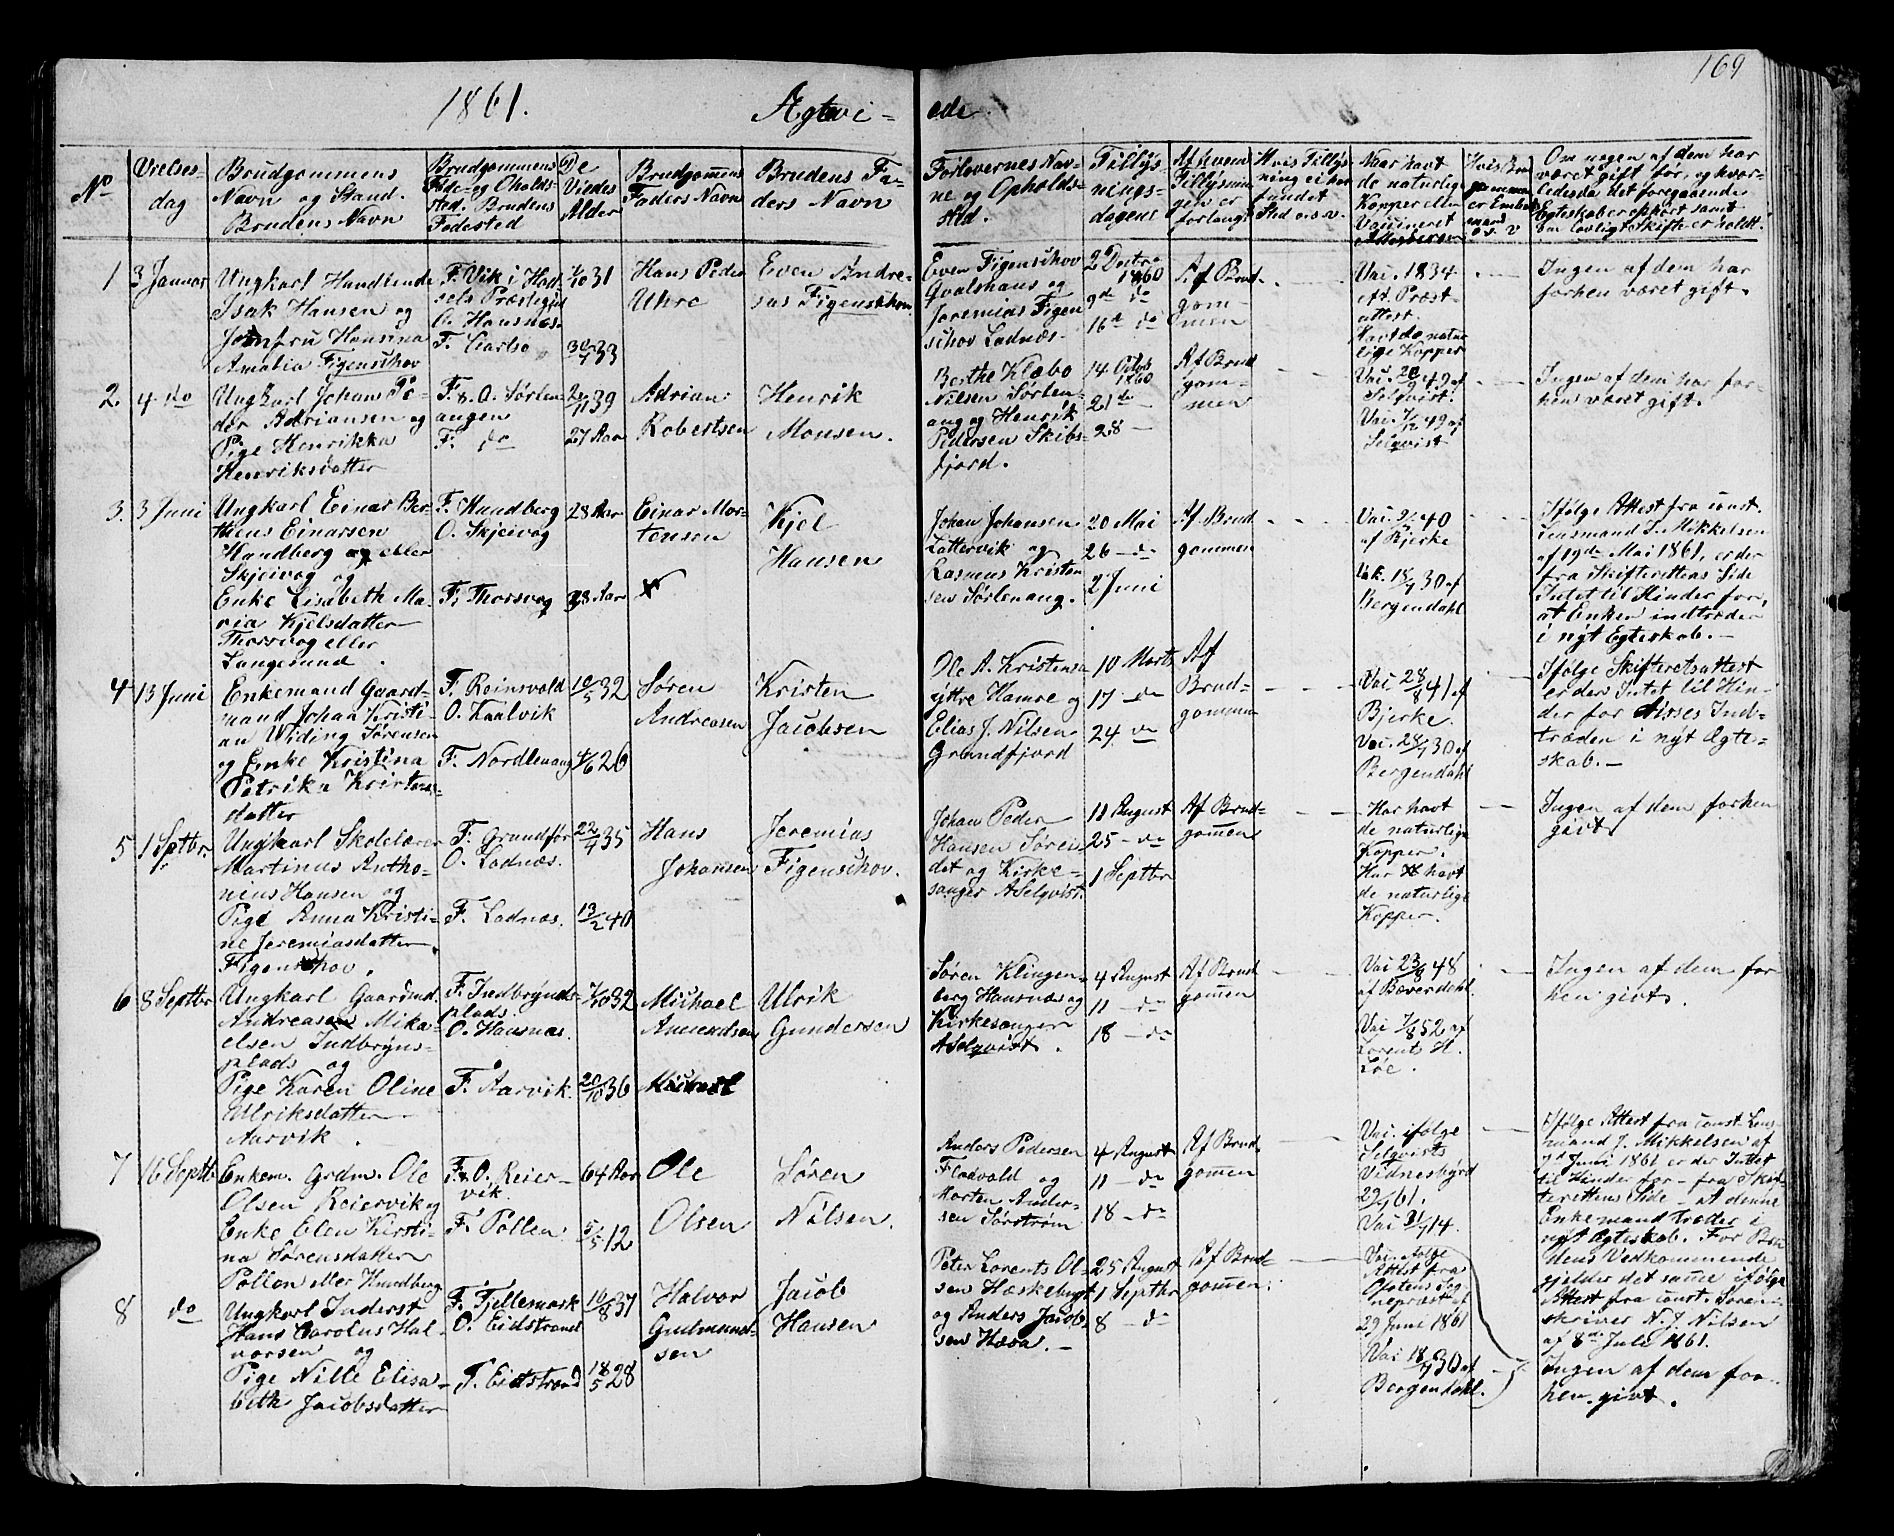 169
1861. Ægtevi- ede
No
Vielses-
dag
Brudgommens
Navn og Stand.
Brudens Navn
Brudgommens
Føde- og Opholds-
sted. Brudens
Fødested
De
Viedes
Alder
Brudgom̅ens
Faders Navn
Brudens Fa-
ders Navn
Forlovernes Nav-
ne og Opholds-
sted.
Tillys-
nings-
dagene
Af hvem
Tillysnin
gen er
forlangt
Hvis Tillys-
ning ei har
fundet
Sted o.s.v.
Naar havt
de naturlige
Kopper eller
Vaccineret
Om nogen af dem har
været gift før, og hvor-
ledes da det foregaaende
Egteskab er ophørt samt
om lovligt Skifte er holdt.
1
3 Januar
Ungkarl Handlende
Isak Hansen og
Jomfru Hansina
Amalia Figenschov
F. Vik i Had-
sels Præstegjd
O. Hansnæs.
F. Carlsø
31
30/4 33
Hans Peder
Uhre
Even Andre-
sas Figenschov
Even Figenschov
Gvalshaus og
Jeremias Figen
schov Ladnæs.
2 Decbr
1860
9de do
16de do
Af Brud-
gom-
men
Vac. 1834
eft. Præst-
attest.
Havt de natur
lige Kopper
Ingen af dem har
forhen været gift.
2.
4 do
Ungkarl Johan Pe-
der Adriansen og
Pige Henrikka
Henriksdatter
F. & O. Sørlen-
angen
F. do
2/11 39
27 Aar
Adrian
Robertsen
Henrik
Monsen.
Berthe Klæbo
Nilsen Sørlen-
ang og Henrik
Pedersen Skibs-
fjord.
14 Octob
1860
21 do -
28 -
Af Brud
gom-
men
Vac. 49 af
Selqvist.
Vac. 7/12 49 af
Selqvist
Ingen af dem har for-
hen været gift.
3.
3 Juni
Ungkarl Einar Ber-
thens Einarsen
Hundberg og eller
Skjeivog og
Enke Lisabeth Ma-
ria Kjelsdatter
Thorsvog eller
Langesund.
F. Hundberg
O. Skjeivog
F. Thorsvog
28 Aar
28 Aar
Einar Mor-
tensen
Kjel
Hansen
Johan Johansen
Lattervik og
Rasmus Kristen
sen Sørlenang.
20 Mai
26 - do
2 Juni
Af Brud
gommen
Vac. 40
af Bjerke
Vak. 18/7 30 af
Bergendahl
Ifølge Attest fra const.
Lensmand J. Mikkelsen
af 19de Mai 1861, er der
fra Skifterettens Side
Intet til Hinder for,
at Enken indtræder
i nyt Egteskab. -
4
13 Juni
Enkemand Gaard-
mand Johan Kristi-
an Widing Sørensen
og Enke Kristina
Petrika Kristens-
datter
F. Reinsvold
O. Kaalvik
F. Nordlenang
10/5 32
4/6 26
Søren
Andreasen
Kristen
Jacobsen
Ole A. Kristensen
yttre Hamre og
Elias J. Nilsen
Grundfjord
10 Marts
17 - do
24 do
Af
Brud-
gommen
Vac. 28/8 41 af
Bjerke.
Vac. 28/7 30 af
Bergendahl
Ifølge Skifteretsattest
er der Intet til Hin-
der for disses Ind-
træden i nyt Ægte-
skab. -
5
1 Septbr.
Ungkarl Skolelærer
Martinus Antho-
nius Hansen og
Pige Anna Kristi-
ne Jeremiasdatter
Figenschov.
F. Grundfør
O. Ladnæs.
F. Ladnæs.
22/4 35
13/2 40
Hans
Johansen
Jeremias
Figenschov.
Johan Peder
Hansen Sørei-
det og Kirke-
sanger A Selqvist.
11 August
25 - do
1 Septbr
Af Brud-
gom̅en
Har havt
de naturlige
Kopper.
Har havt
de naturlige
Kopper.
Ingen af dem forhen
givt
6
8 Septbr
Ungkarl Gaardmd.
Andreas Mika-
elsen Indbryns-
plads og
Pige Karen Oline
Ulriksdatter
Aarvik.
F. Indbrynds-
plads.
O. Hansnæs.
F. Aarvik.
7/10 32
20/10 36
Michael
Amundsen
Ulrik
Gundersen
Søren Klingen-
berg Hansnæs og
Kirkesanger
A Selqvist.
4 August
11 - do
18 - do
Af Brud
gom̅en
Vac 23/8 48
af Bæverdahl.
Vac 7/8 52 af
Lorents H.
Løe.
Ingen af dem for
hen givt.
7
16 Septb
Enkem. Grdm. Ole
Olsen Reiervik og
Enke Elen Kirsti-
na Sørensdatter
Pollen eller Hundberg
F. & O. Reier-
vik.
F. Pollen.
64 Aar
5/5 12
Ole
Olsen
Søren
Nilsen.
Anders Pedersen
Fladvold og
Morten Ander-
sen Sørstrøm
4 August
11 - do
18 - do
Af Brud-
gom̅en
Vac. ifølge
Selqvists
Vidnesbyrd
29/7 61.
Vac 14.
Ifølge Attest fra const. Lens-
mand J. Mikkelsen af
Juni 1861 er der Intet
til Hinder for - fra Skif-
terettens Side - at denne
Enkemand træder i
nyt Ægteskab. For Bru
dens Vedkommende
gjelder det sam̅e ifølge
Attest fra const. Soren-
skriver N. J. Nilsen
af 8de Juli 1861.
8
do
Ungkarl Inderst
Hans Carolus Hal-
vorsen og
Pige Nille Elisa-
beth Jacobsdatter
F. Fjellemark
O. Eidstrand
F. Eidstrand
10/8 37
18/5 28
Halvor
Gudmund-
sen
Jacob
Hansen
Peter Lorents Ol-
sen
og Anders Jacob-
sen
25 August
1 Septbr
8 - do
Af Brud-
gom̅en.
Vac. ifølge
Attest fra
Ofotens Sog-
nepræst af
29 Juni 1861
Vac 18/7 30 af
Bergendahl.
Ingen af dem for-
hen givt.